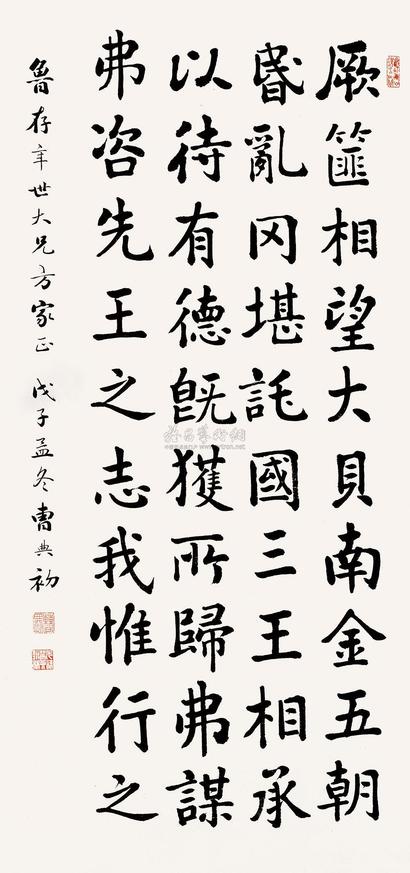 厥篚相望大貝南金五朝
昬亂冈堪託國三王相承
以待有德旣獲所歸弗謀
弗咨先王之志我惟行之
魯存年世大兄方家正 戊子孟冬曹典初